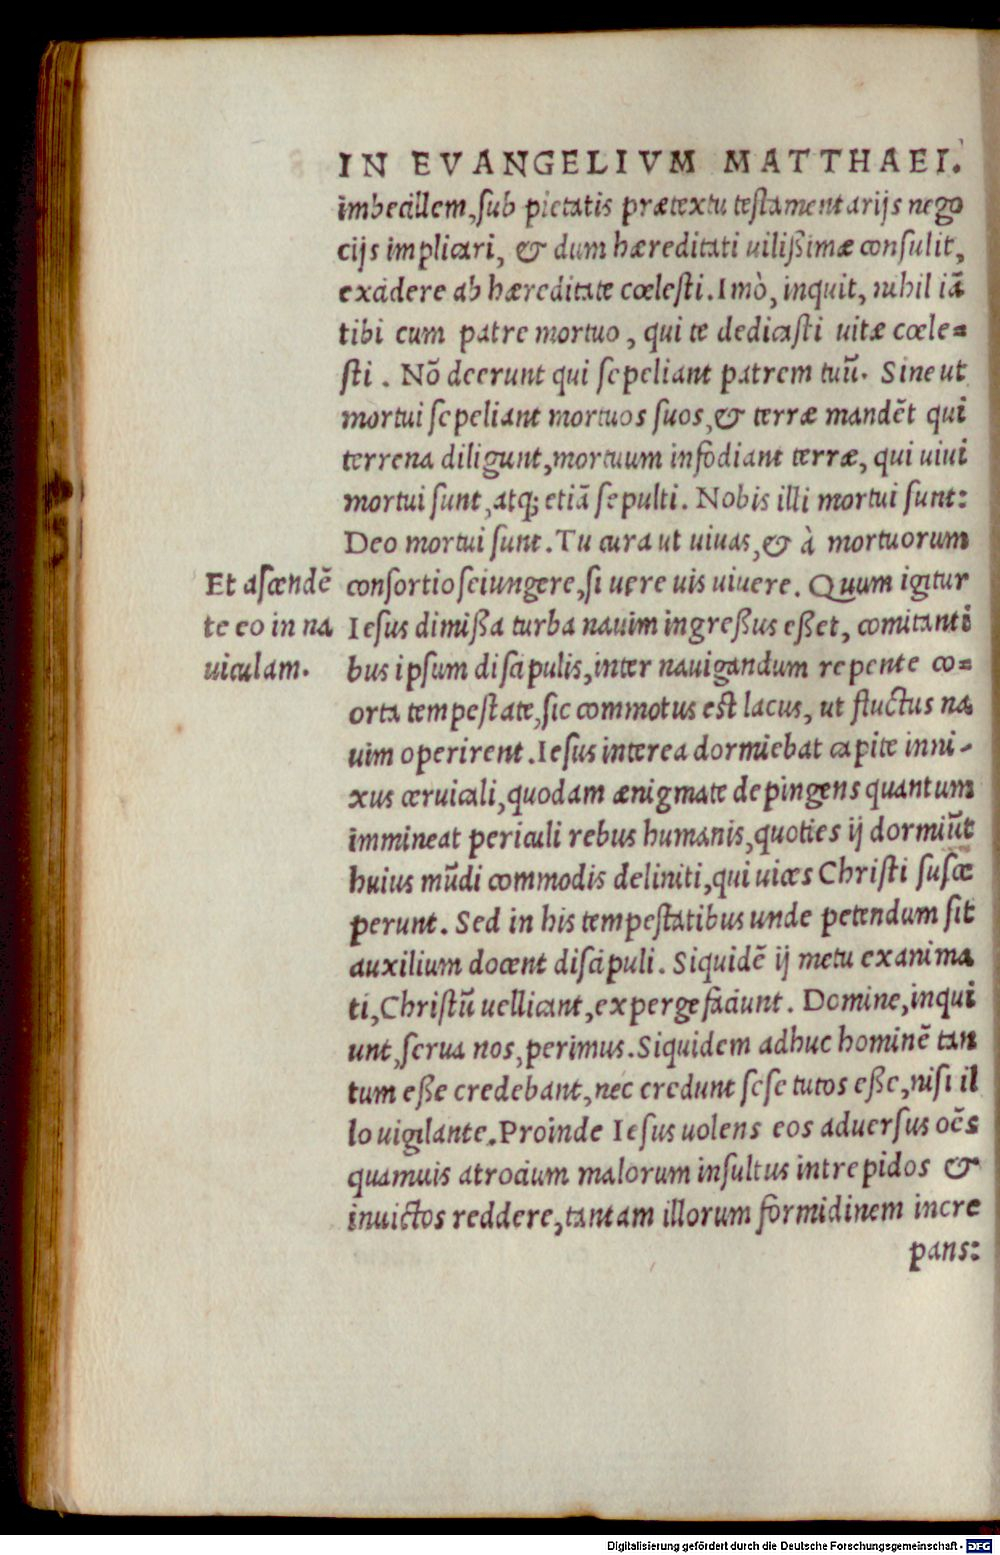 IN EVANGELIVM MATTHAEI.
imbecillem, sub pietatis prætextu testamentarijs nego
cijs implicari, & dum hæreditati uilißimæ consulit,
excidere ab hæreditate cœlesti. Imò, inquit, nihil iā
tibi cum patre mortuo, qui te dedicasti uitæ cœle=
sti. Nō deerunt qui sepeliant patrem tuū. Sine ut
mortui sepeliant mortuos suos, & terræ mandēt qui
terrena diligunt, mortuum infodiant terræ, qui uiui
mortui sunt, atq; etiā sepulti. Nobis illi mortui sunt:
Deo mortui sunt. Tu cura ut uiuas, & à mortuorum
consortio seiungere, si uere uis uiuere. Quum igitur
Iesus dimißa turba nauim ingreßus eßet, comitanti
bus ipsum discipulis, inter nauigandum repente co=
orta tempestate, sic commotus est lacus, ut fluctus na
uim operirent. Iesus interea dormiebat capite inni-
xus ceruicali, quodam ænigmate depingens quantum
immineat periculi rebus humanis, quoties ij dormiūt
huius mūdi commodis deliniti, qui uices Christi susce
perunt. Sed in his tempestatibus unde petendum sit
auxilium docent discipuli. Siquidē ij metu exanima
ti, Christū uellicant, expergefaciunt. Domine, inqui
unt, serua nos, perimus. Siquidem adhuc hominē tan
tum eße credebant, nec credunt sese tutos eße, nisi il
lo uigilante. Proinde Iesus uolens eos aduersus oēs
quamuis atrocium malorum insultus intrepidos &
inuictos reddere, tantam illorum formidinem incre
pans:
Et ascendē
te eo in na
uiculam.
Digitalisierung gefördert durch die Deutsche Forschungsgemeinschaft - DFG